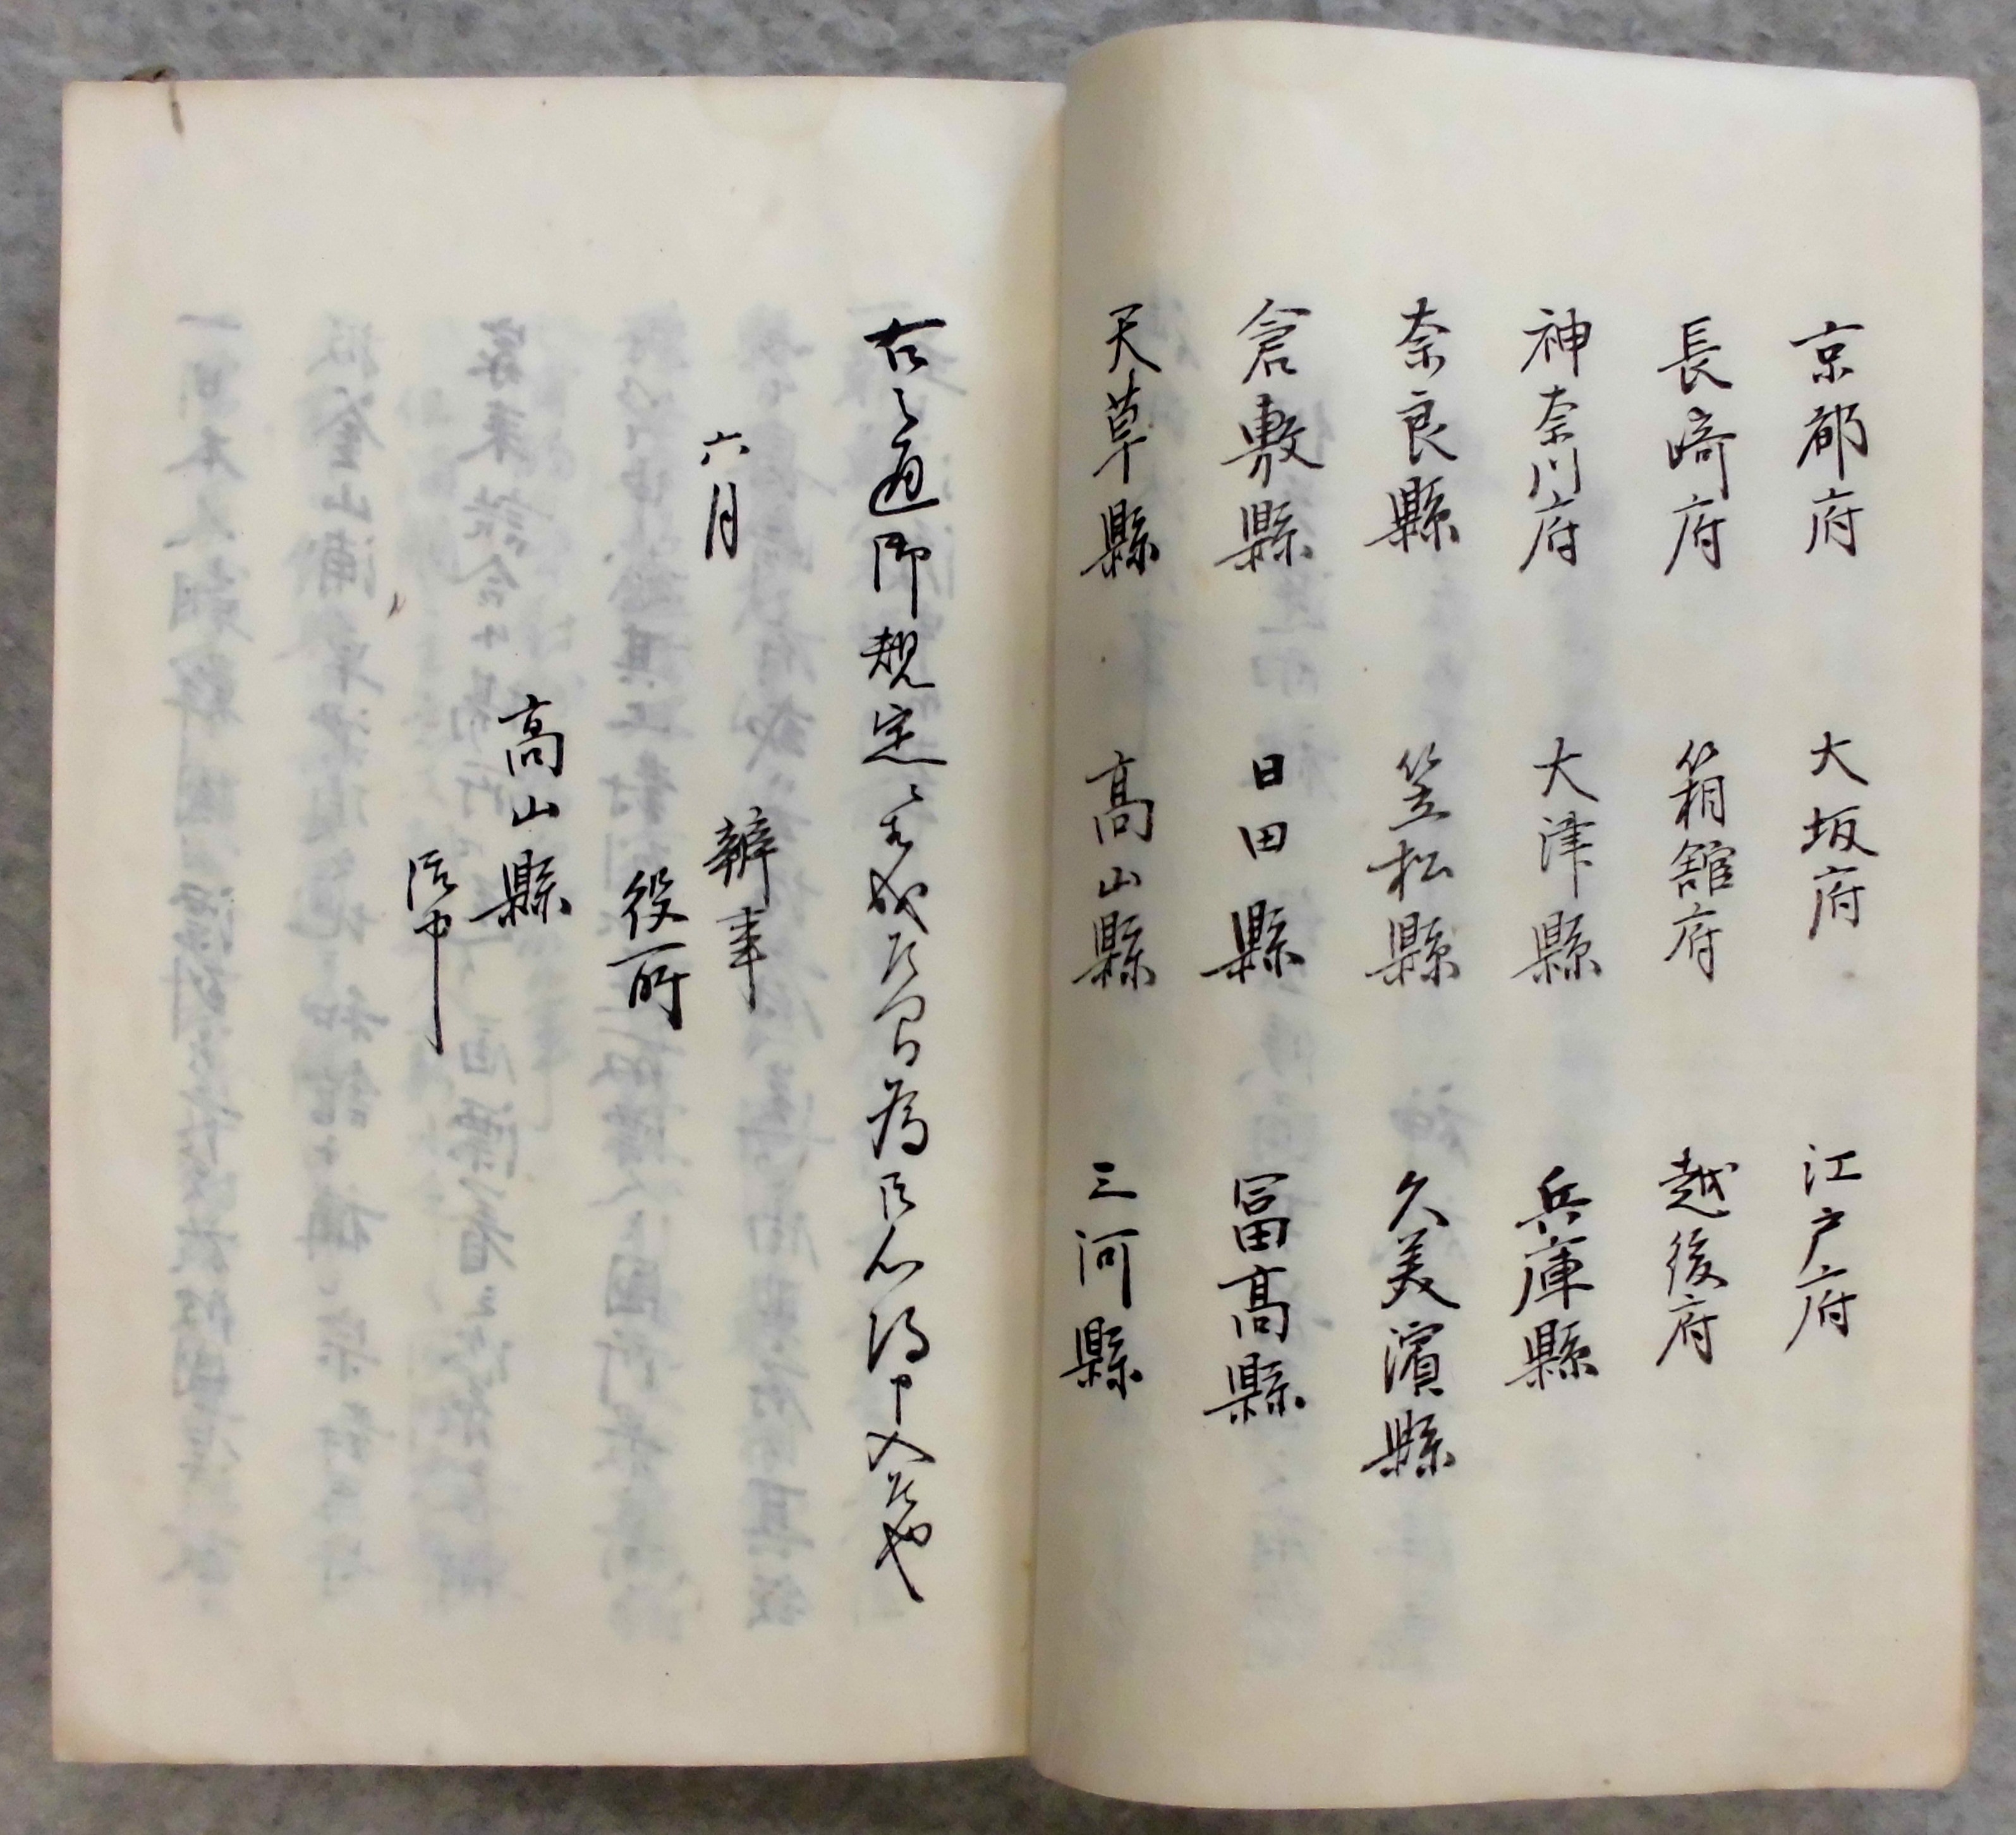 京都府 大坂府 江戸府
長崎府 箱舘府 越後府
神奈川府 大津縣 兵庫縣
奈良縣 笠松縣 久美濱縣
倉敷縣 日田縣 冨高縣
天草縣 高山縣 三河縣
右之通御規定ニ相成候間為御心得申入候也
六月
辨事
役所
高山縣
御中